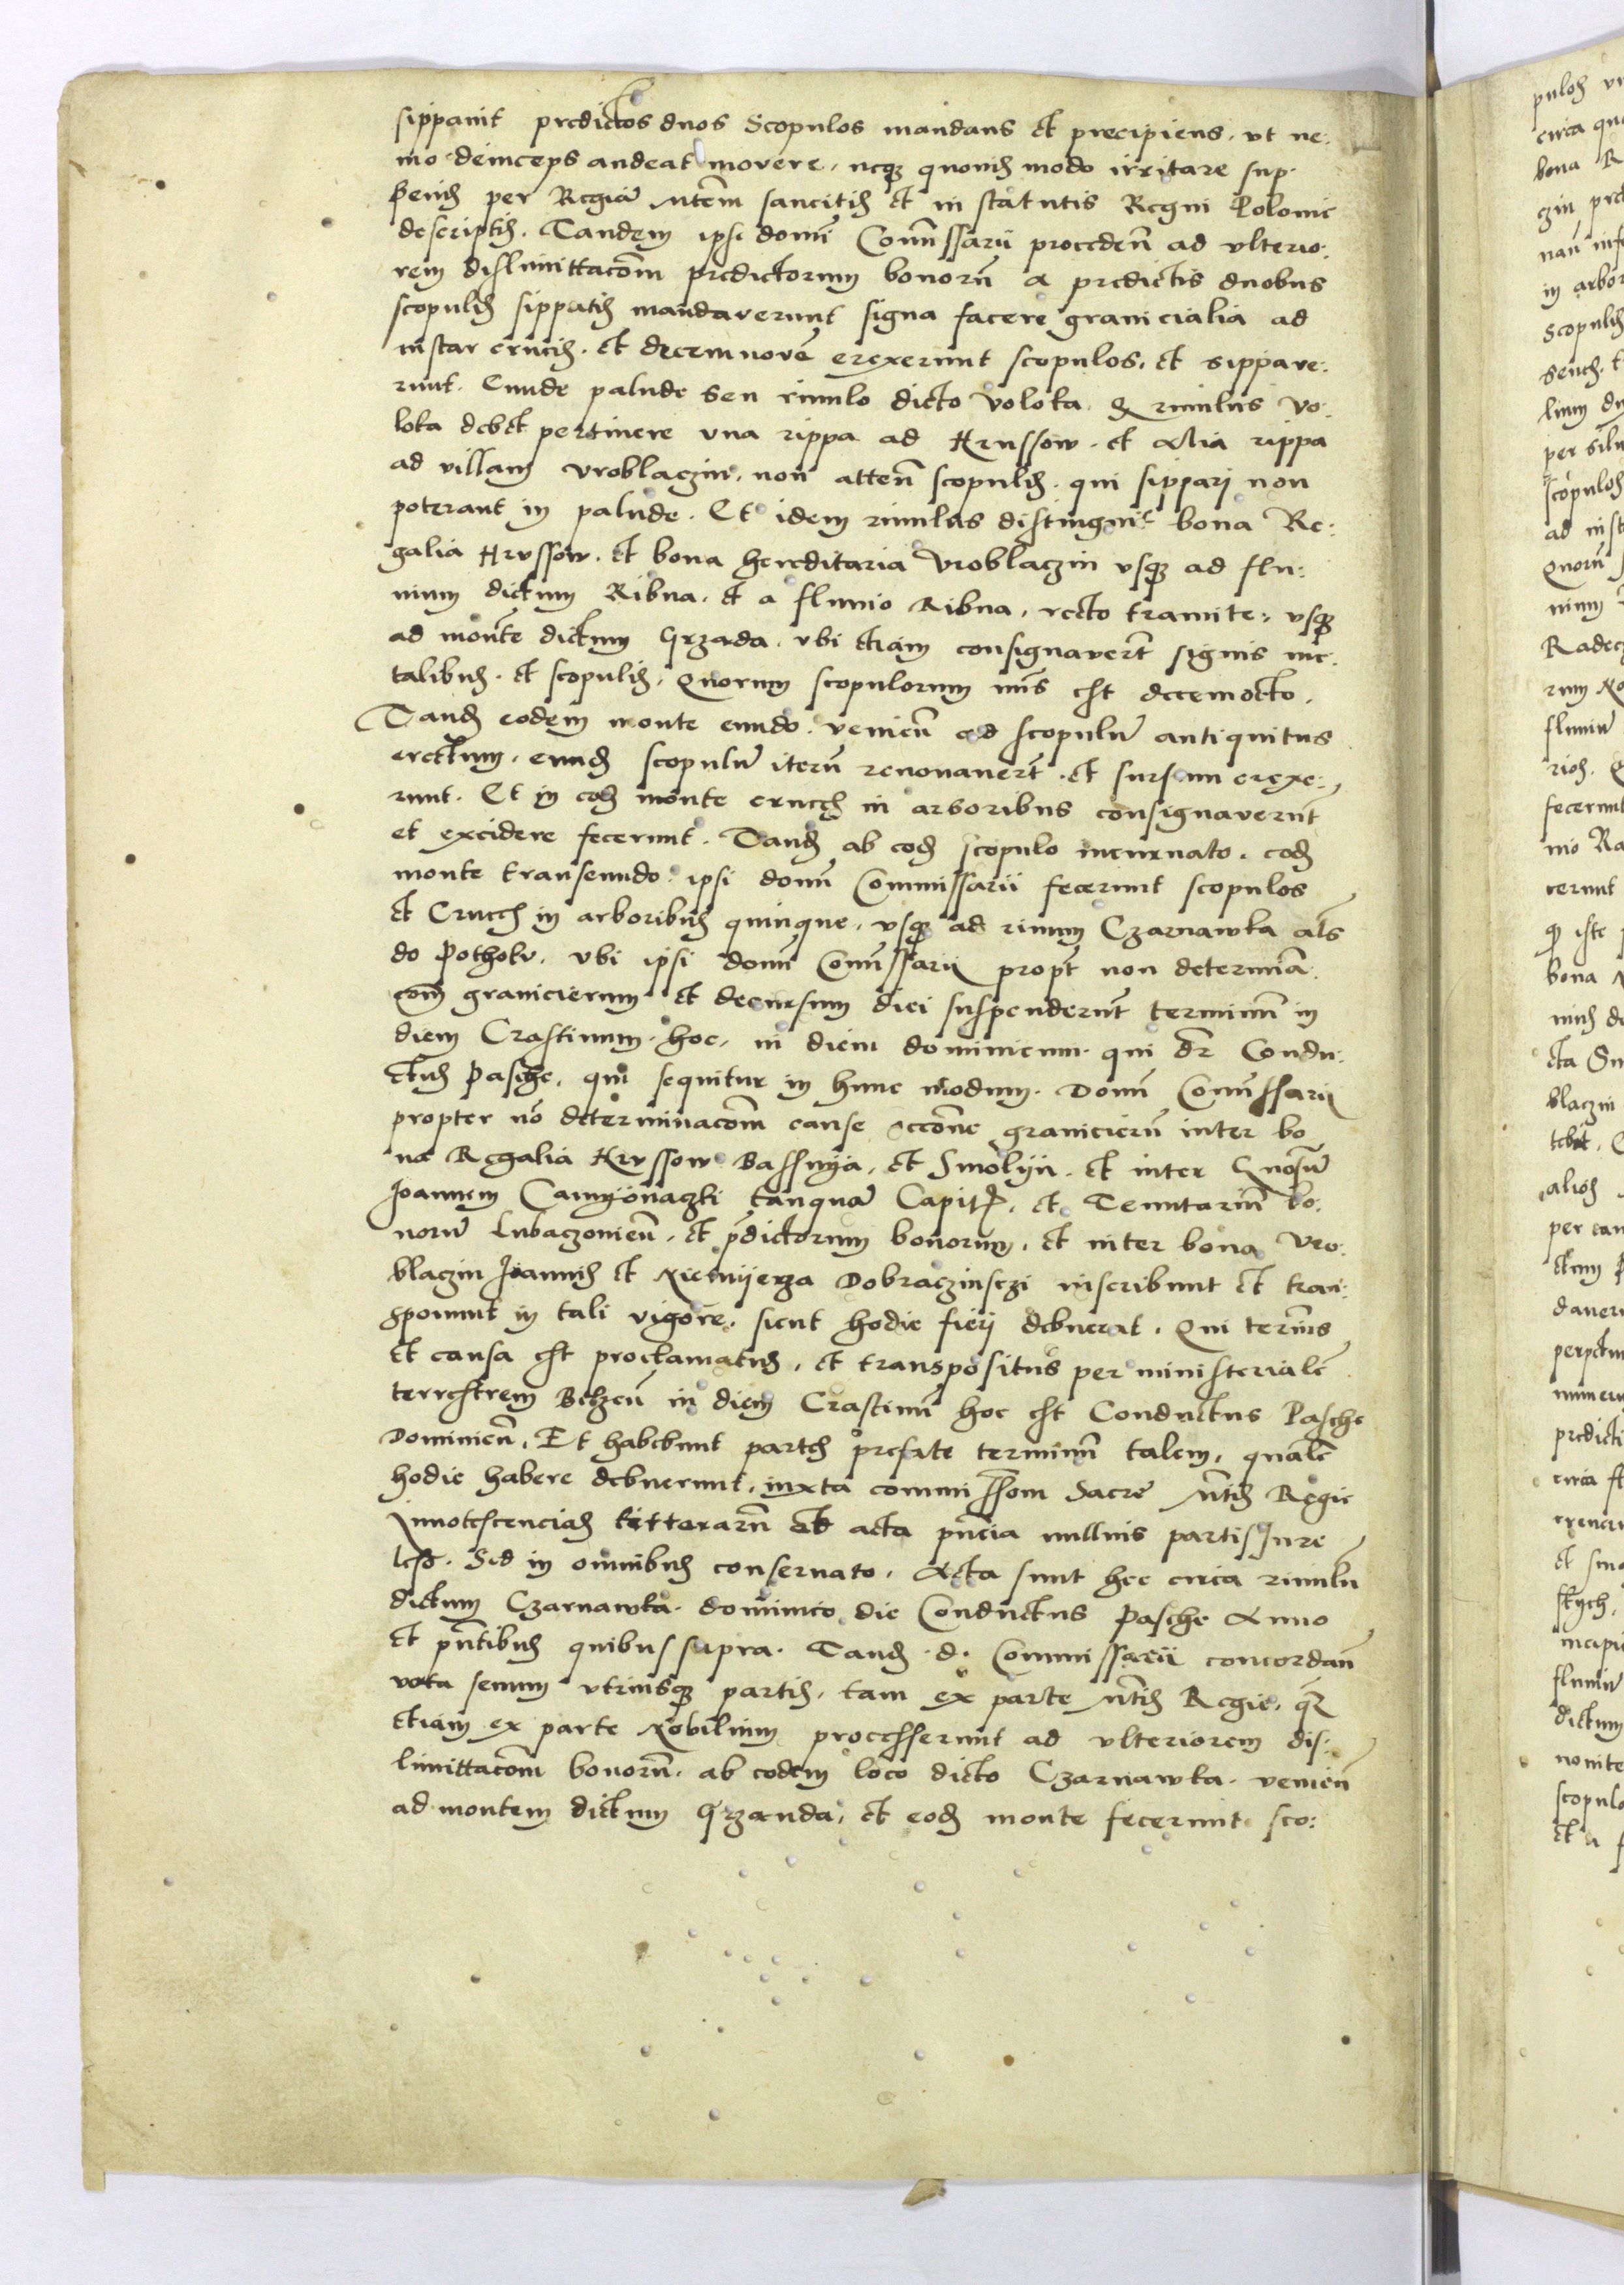 sippavit predictos duos Scopulos mandans et precipiens, vt ne:
mo deinceps audeat movere, neqꝫ quovis modo irritare sup
penis per Regiam Mtem sancitis et in statutis Regni Polonie
descriptis. Tandem ipsi domi Comissarii proceden ad vlterio:
rem dislimittacom predictorum bonorū a predictis duobus
scopulis sippatis mandaverunt signa facere granicialia ad
instar crucis. et decemnovē erexerunt scopulos, et sippave:
runt. Eundē palude seu riuulo dicto Volota. Qꝫ riuulus Vo:
lota debet pertinere vna rippa ad Hrussow. et alia rippa
ad villam Vroblaczin, non atten scopulis. qui sippari non
poterant in palude. Et idem riuulus distinguit bona Re:
galia Hrussow. et bona hereditaria Vroblaczin vsqꝫ ad flu:
uium dictum Ribna. et a fluuio Ribna, recto tramite, vsqꝫ
ad montē dictum Grzada. vbi etiam consignavert signis me:
talibus. et scopulis, Quorum scopulorum nūs est decemocto.
Tandē eodem monte eundo. venien ad scopulū antiquitus
erectum, eundē scopulū iterū renovavert. et sursum erexe:
runt. Et in eodē monte cruces in arboribus consignaverūt
et excidere fecerunt. Tandē ab eodē scopulo incurvato, eodē
monte transeundo ipsi domi Commissarii fecerunt scopulos
et Cruces in arboribus quinque, vsqꝫ ad riuum Czarnawka als
do Pothoku. vbi ipsi domi Comissarii propt non determina:
com granicierum et decursum diei suspenderūt terminū in
diem Crastinum. hoc. in diem dominicum. qui dr Condu:
ctus Pasche, qui sequitur in hunc modum. Domi Comissarii
propter nō determinacom cause accōne granicierū inter bo
na Regalia Hrussow Bassnya, et Smolyn. et inter Gnosum
Joannem Camyonaczki tanquā Capit. et Tenutariū bo:
norū Lubaczovien, et p̄dictorum bonorum, et inter bona Vro:
blaczin Joannis et Niemyerza Dobraczinsczi inscribunt et tran:
sponunt in tali vigore, sicut hodie fieri debuerat. Qui terīns
et causa est proclamatus, et transpositus per ministerialē
terrestrem Belzen in diem Crastinū hoc est Conductus Pasche
Dominicū. Et habebunt partes prefate terminū talem, qualē
hodie habere debuerunt, iuxta commissom Sacre Mtis Regie
Innotescencias litterarū ab acta pn̄cia nullius partis Jure
leso. Sed in omnibus conservato. Acta sunt hec circa riuulū
dictum Czarnawka. dominico die Conductus Pasche Anno
et pn̄tibus quibus supra. Tandē .d. Commissarii concordan
vota senum vtriusqꝫ partis, tam ex parte Mtis Regie, qꝫ
etiam ex parte Nobilium processerunt ad vlteriorem dis:
limittacom bonorū. ab eodem loco dicto Czarnawka. venien
ad montem dictum Grzanda, et eodē monte fecerunt sco: